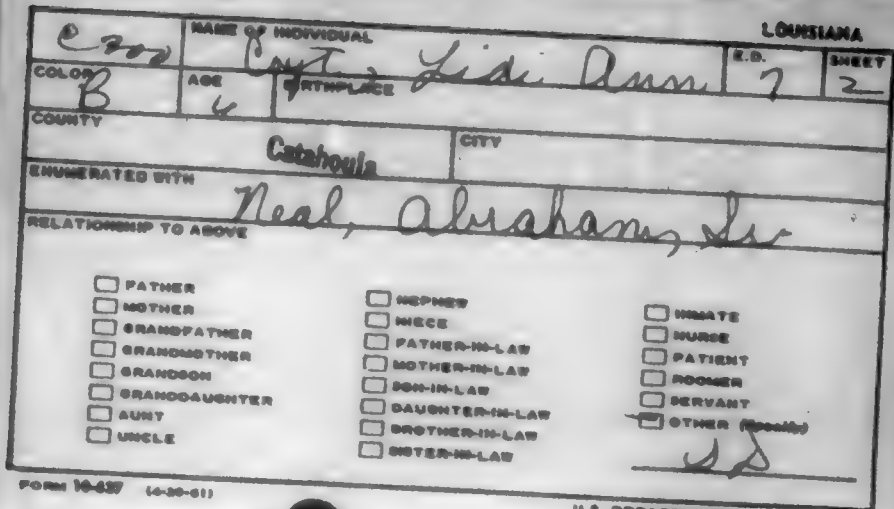 LOUISIANA
NAME OF INDIVIDUAL
E.D.
SHEET
Ann
7
2
COLOR
B
AGE
BIRTHPLACE
COUNTY
Catahoula
CITY
ENUMERATED WITH
Neal, Abraham, Sr
RELATIONSHIP TO ABOVE
FATHER
MOTHER
GRANDFATHER
GRANDMOTHER
GRANDSON
GRANDDAUGHTER
AUNT
UNCLE
NEPHEW
NIECE
FATHER-IN-LAW
MOTHER-IN-LAW
SON-IN-LAW
DAUGHTER-IN-LAW
BROTHER-IN-LAW
SISTER-IN-LAW
INMATE
NURSE
PATIENT
ROOMER
SERVANT
OTHER (Specify)
SD
FORM 10-637 (4-20-61)